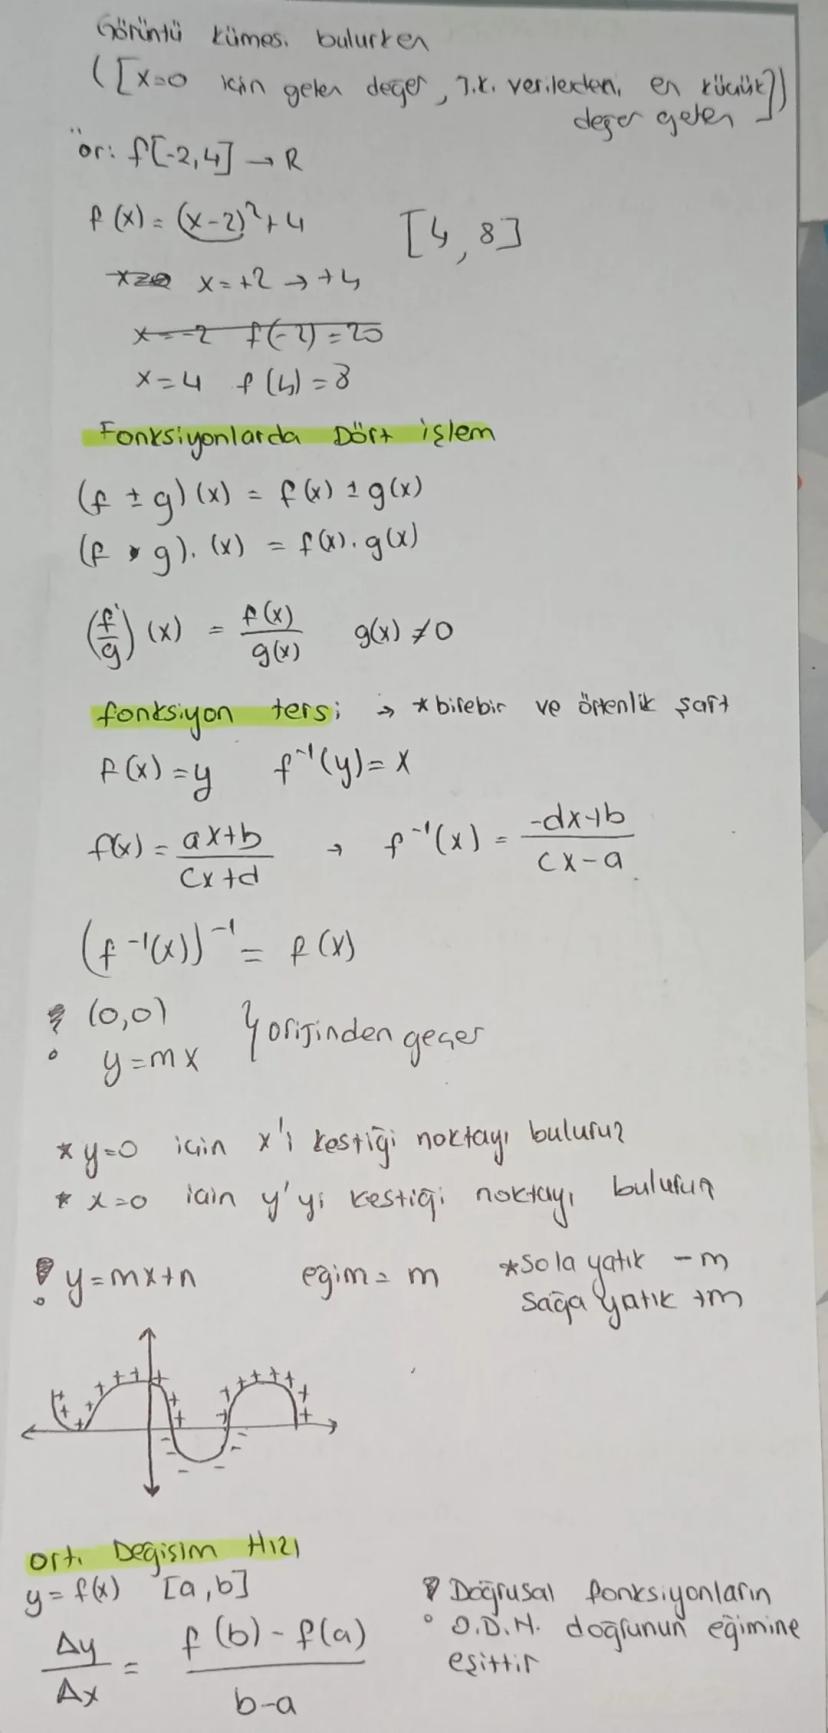 Görüntü kümesi bulurken
([x=0 için gelen değer, T.K. verilerden, en küçük])
değer gelen
ör: f[-2,4] → R
f(x) = (x-2)²+4 [4, 8]
x=+2 → +4
x=-2 f(-2)=20
x=4 f(4)=8
Fonksiyonlarda Dört işlem
(f ± g)(x) = f(x) ± g(x)
(f · g).(x) = f(x).g(x)
(f/g)(x) = f(x)/g(x) g(x)≠0
fonksiyon tersi → *birebir ve örtenlik şart
f(x)=y f⁻¹(y)=x
f(x) = ax+b/cx+d → f⁻¹(x) = -dx+b/cx-a
(f⁻¹(x))⁻¹ = f(x)
! (0,0) } orijinden geçer
y=mx
* y=0 için x'i kestiği noktayı buluruz
* x=0 için y'yi kestiği noktayı buluruz
! y=mx+n eğim=m *Sola yatık -m
Sağa yatık +m
Ort. Değişim Hızı
y=f(x) [a,b]
Δy/Δx = f(b)-f(a)/b-a
! Doğrusal fonksiyonların
O.D.H. doğrunun eğimine
eşittir